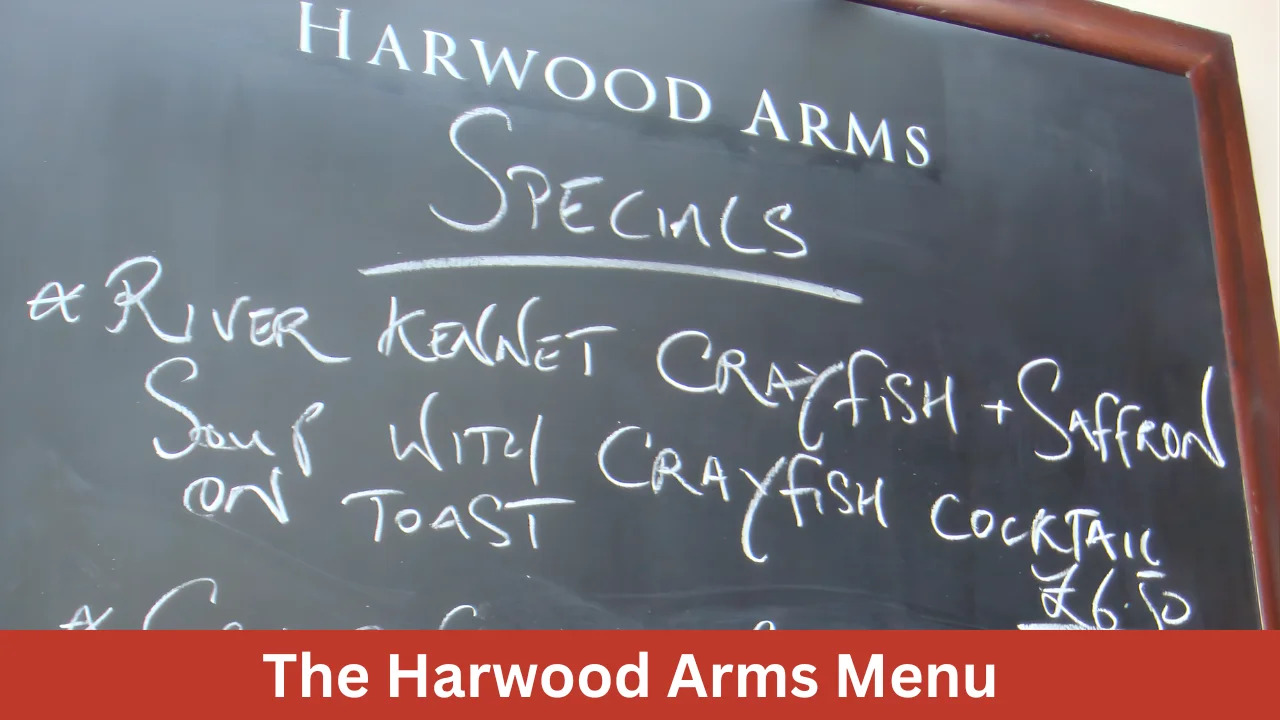 HARWOOD ARMS
SPECIALS
* RIVER KENNET CRAYFISH + SAFFRON
SOUP WITH CRAYFISH COCKTAIL
ON TOAST
£6.50
*
The Harwood Arms Menu